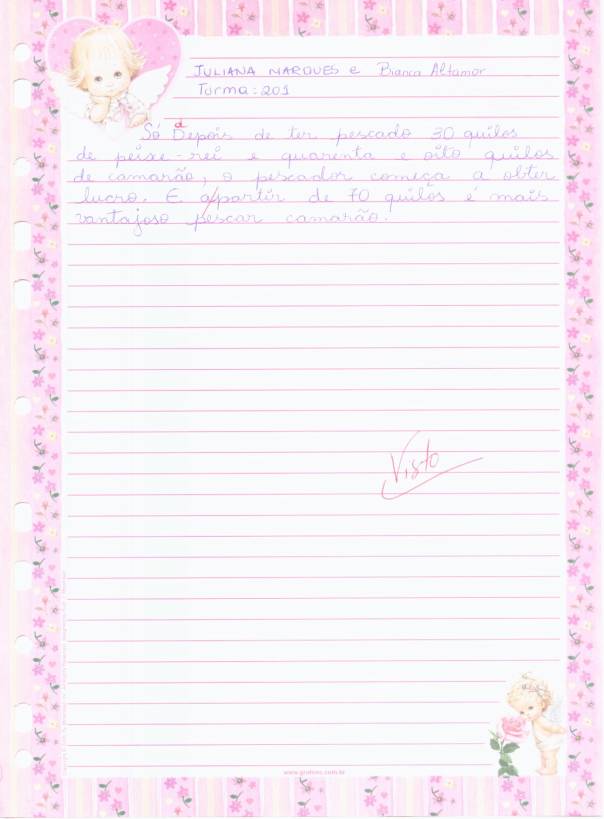 JULIANA MARQUES e Bianca Altamor
Turma: 201
d
Só Depois de ter pescado 30 quilos
de peixe-rei e quarenta e oito quilos
de camarão, o pescador começa a obter
lucro. E apartir de 70 quilos é mais
vantajoso pescar camarão.
Visto
www.grafons.com.br